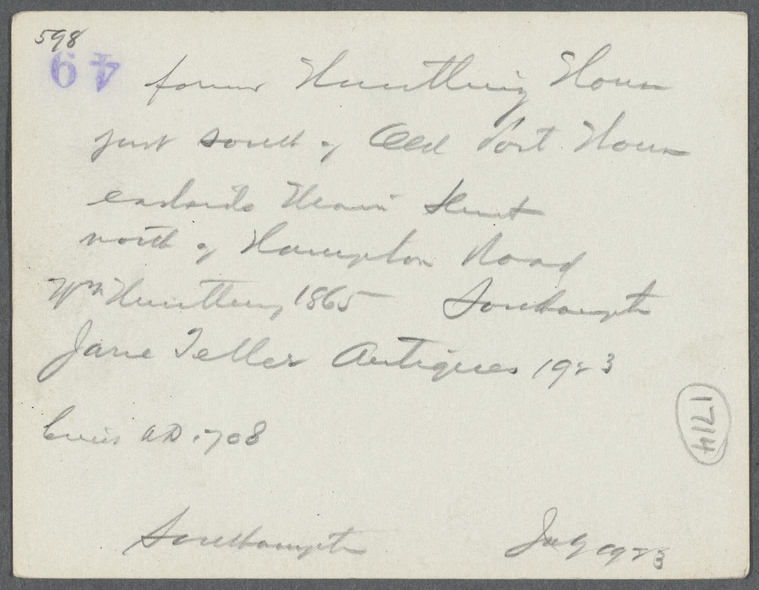 598
49
former Huntting House
just south of Old Post House
eastside Main Street
north of Hampton Road
Wm Huntting 1865 Southampton
Jane Teller Antiques 1923
A.D. 708
Southampton July 1923
1714